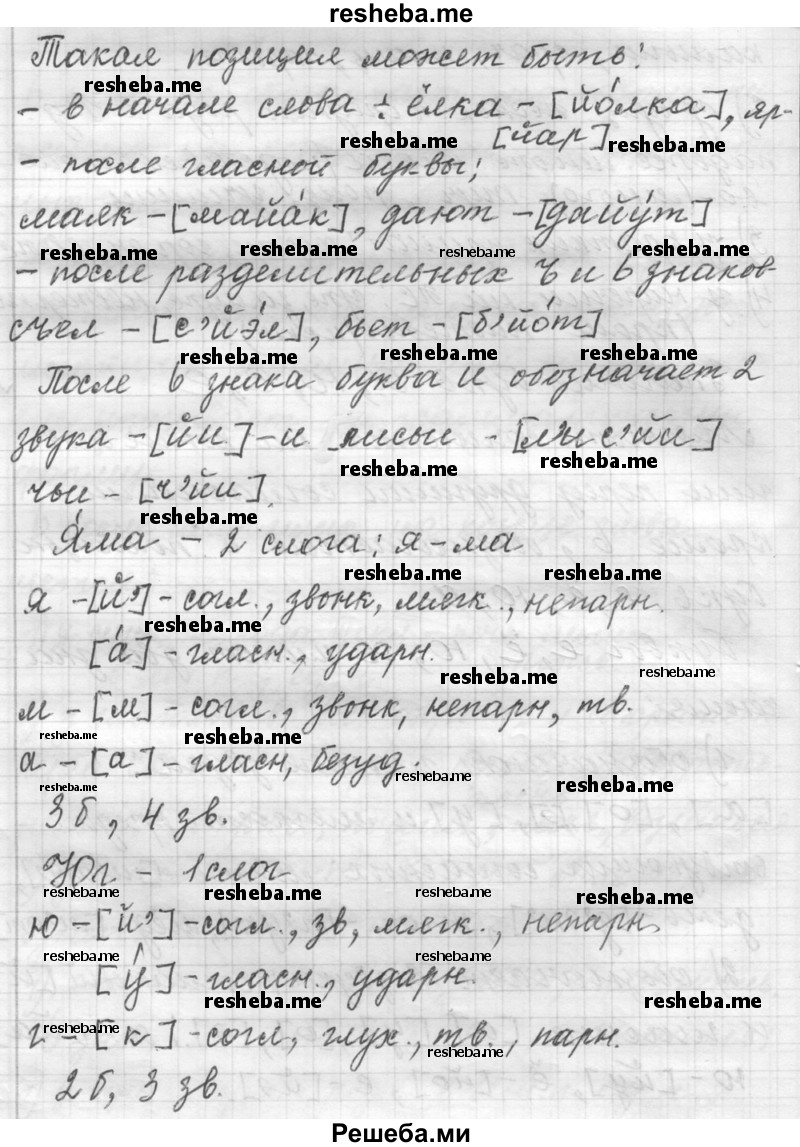 resheba.me
Такая позиция может быть:
resheba.me
- в начале слова : ёлка - [йо́лка], яр-
resheba.me [йар] resheba.me
- после гласной буквы;
маяк - [майа́к], дают - [дайу́т]
resheba.me resheba.me resheba.me resheba.me
- после разделительных ъ и ь знаков
съел - [с’йэ́л], бьет - [б’йо́т]
resheba.me resheba.me resheba.me
После ь знака буква и обозначает 2
звука - [йи] - и лисьи - [л’ис’йи]
resheba.me resheba.me
чьи - [ч’йи]
resheba.me
Я́ма - 2 слога: я-ма
resheba.me resheba.me
я - [й’] - согл., звонк, мягк., непарн.
resheba.me
[а́] - гласн., ударн.
resheba.me resheba.me
м - [м] - согл., звонк, непарн, тв.
resheba.me resheba.me
а - [а] - гласн, безуд.
resheba.me
resheba.me resheba.me
3 б, 4 зв.
Юг - 1 слог
resheba.me resheba.me resheba.me resheba.me
ю - [й’] - согл., зв, мягк., непарн.
resheba.me resheba.me
[у́] - гласн., ударн.
resheba.me resheba.me
г - [к] - согл, глух., тв., парн.
resheba.me resheba.me
2 б, 3 зв.
Решеба.ми